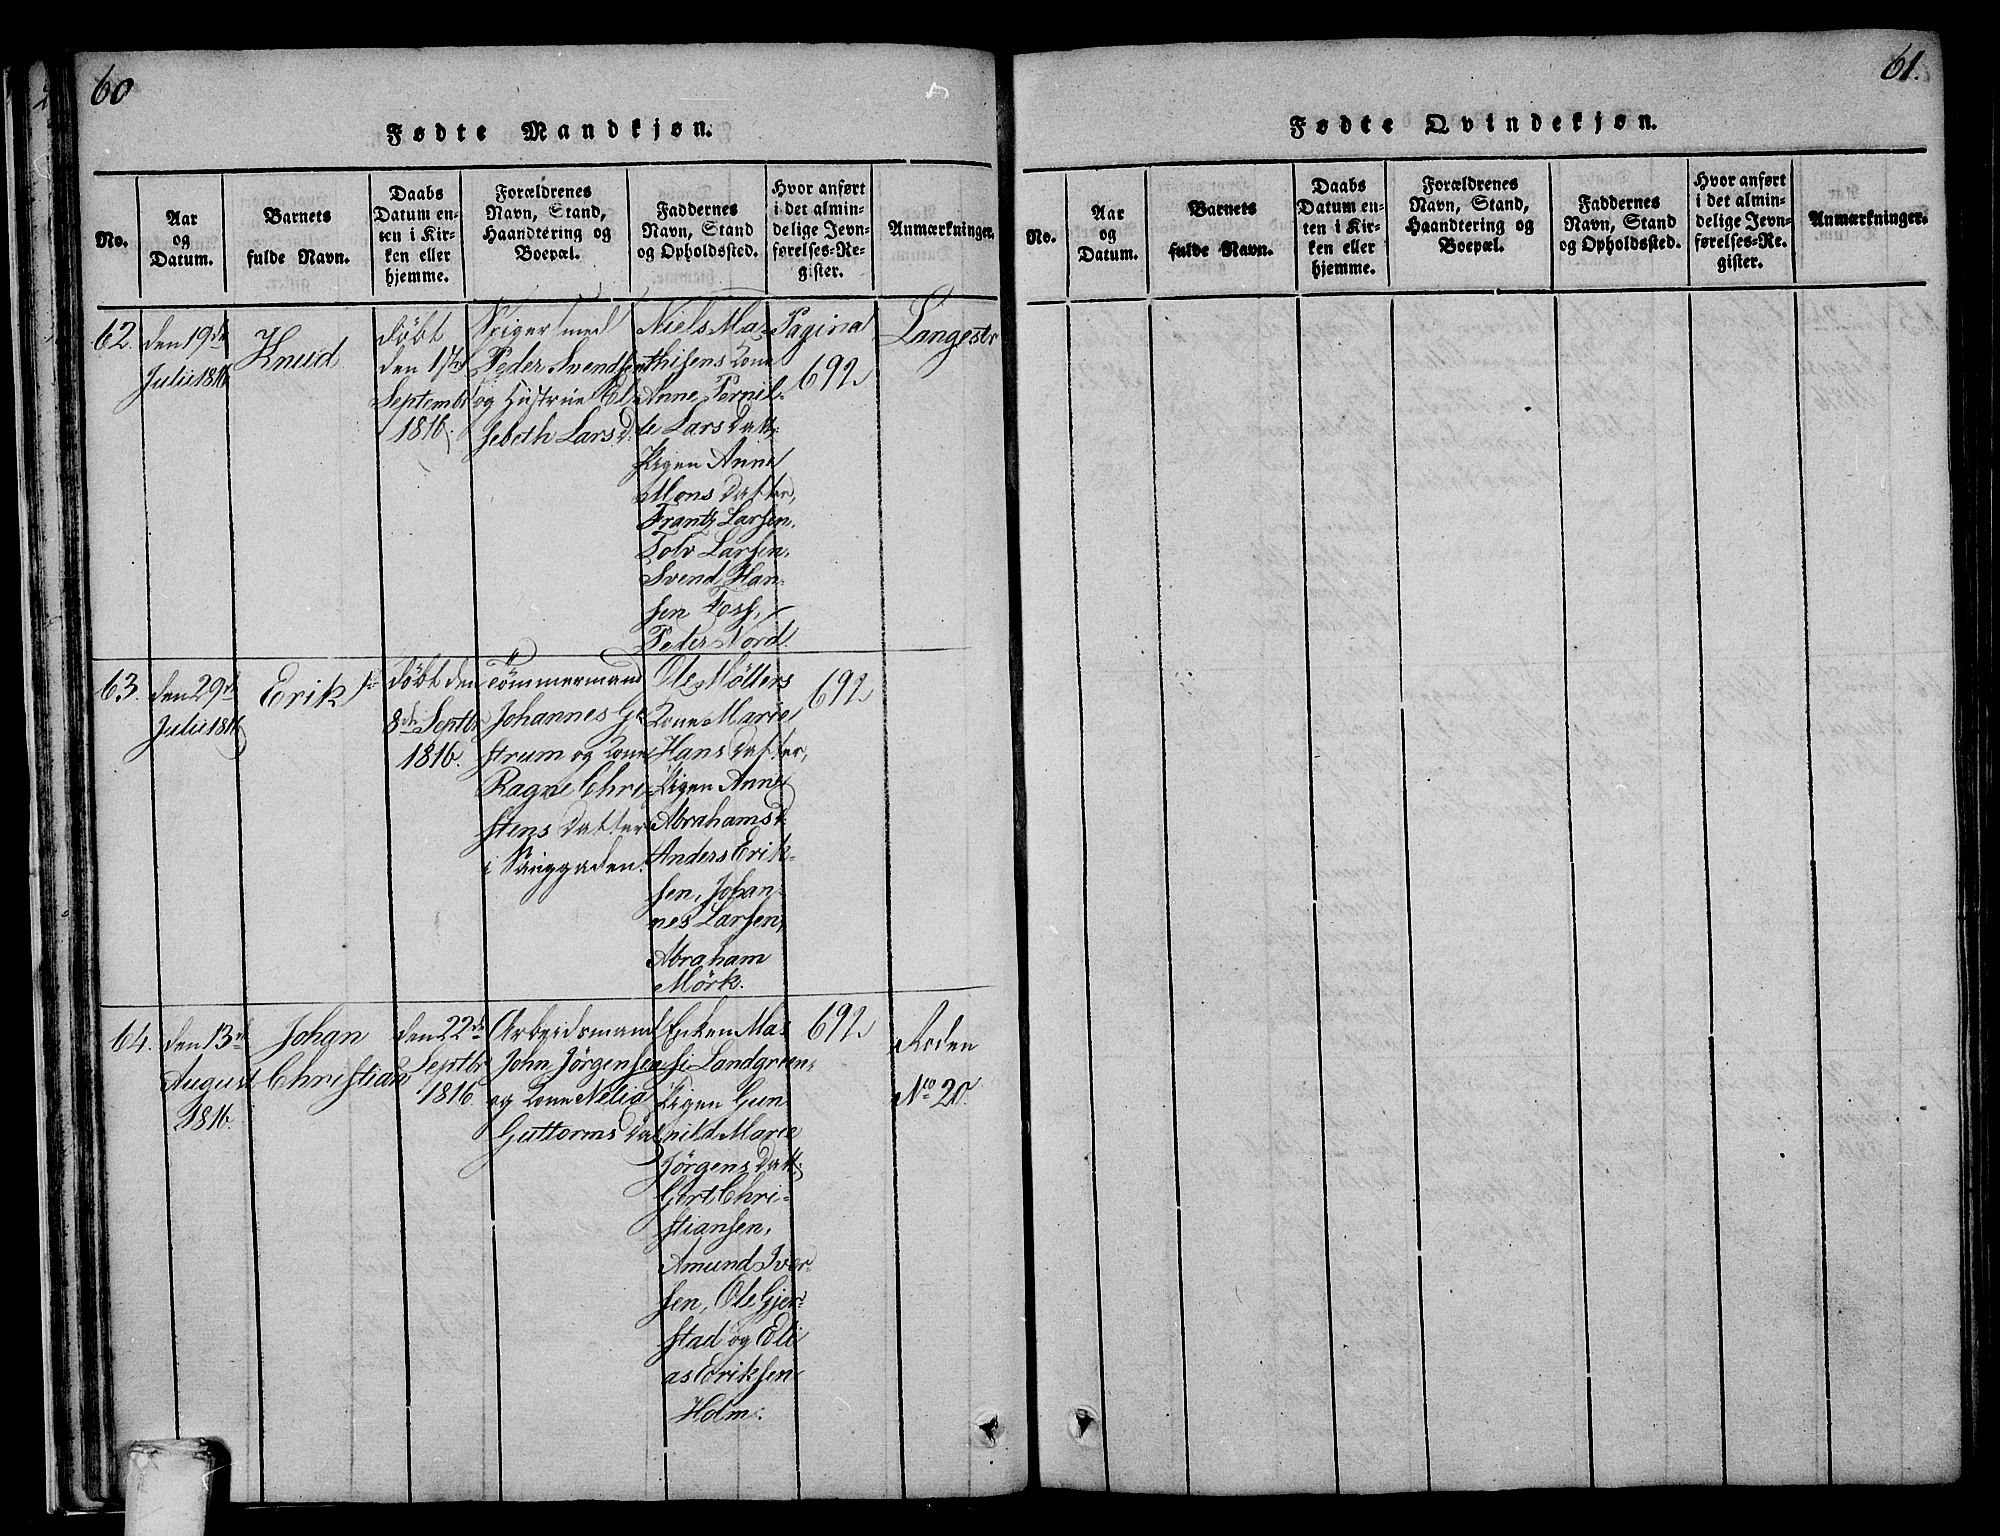 60
Fødte Mandkjøn.
No.
Aar
og
Datum.
Barnets
fulde Navn.
Daabs
Datum en-
ten i Kir-
ken eller
hjemme.
Forældrenes
Navn, Stand,
Haandtering og
Boepæl.
Faddernes
Navn, Stand
og Opholdssted.
Hvor anført
i det almin-
delige Jevn-
førelses-Re-
gister.
Anmærkninger.
62.
den 19de
Julii 1816
Knud
døbt
den 17de
Septembr
1816.
Peder Svendsen
og Hustrue El-
sebeth Lars D.
Niels Ma-
thisens Kone
Anne Pernil-
le Lars Datt,
Pigen Anne
Mons Datter,
Frantz Larsen,
Tolv Larsen,
Svend Han-
sen Foss,
Peter Nord.
Pagina
692
Langestr
63.
den 29de
Julii 1816
Erik
døbt den
8de Septbr
1816.
Tömmermand
Johannes Ge-
strum og Kone
Ragne Chri-
stens Datter
i
Ole Möllers
Kone Marie
Hans Datter,
Pigen Anne
Abrahams D.
Anders Erik-
sen, Johan-
nes Larsen,
Abraham
Mörk.
692
64.
den 13de
August
1816.
Johan
Christian
den 22de
Septbr
1816.
Arbeidsmand
John Jörgensen
og Kone Nelia
Guttorms Dat
Enken Ma-
si Landgreen,
Pigen Gun
nild Marie
Jörgens Datt,
Gert Chri-
stiansen,
Amund Iver-
sen, Ole Gjer-
stad og Eli
as Eriksen
Holm.
692
Roden
No 20.
61.
Fødte Qvindekjøn.
No.
Aar
og
Datum.
Barnets
fulde Navn.
Daabs
Datum en-
ten i Kir-
ken eller
hjemme.
Forældrenes
Navn, Stand,
Haandtering og
Boepæl.
Faddernes
Navn, Stand
og Opholdssted.
Hvor anført
i det almin-
delige Jevn-
førelses-Re-
gister.
Anmærkninger.